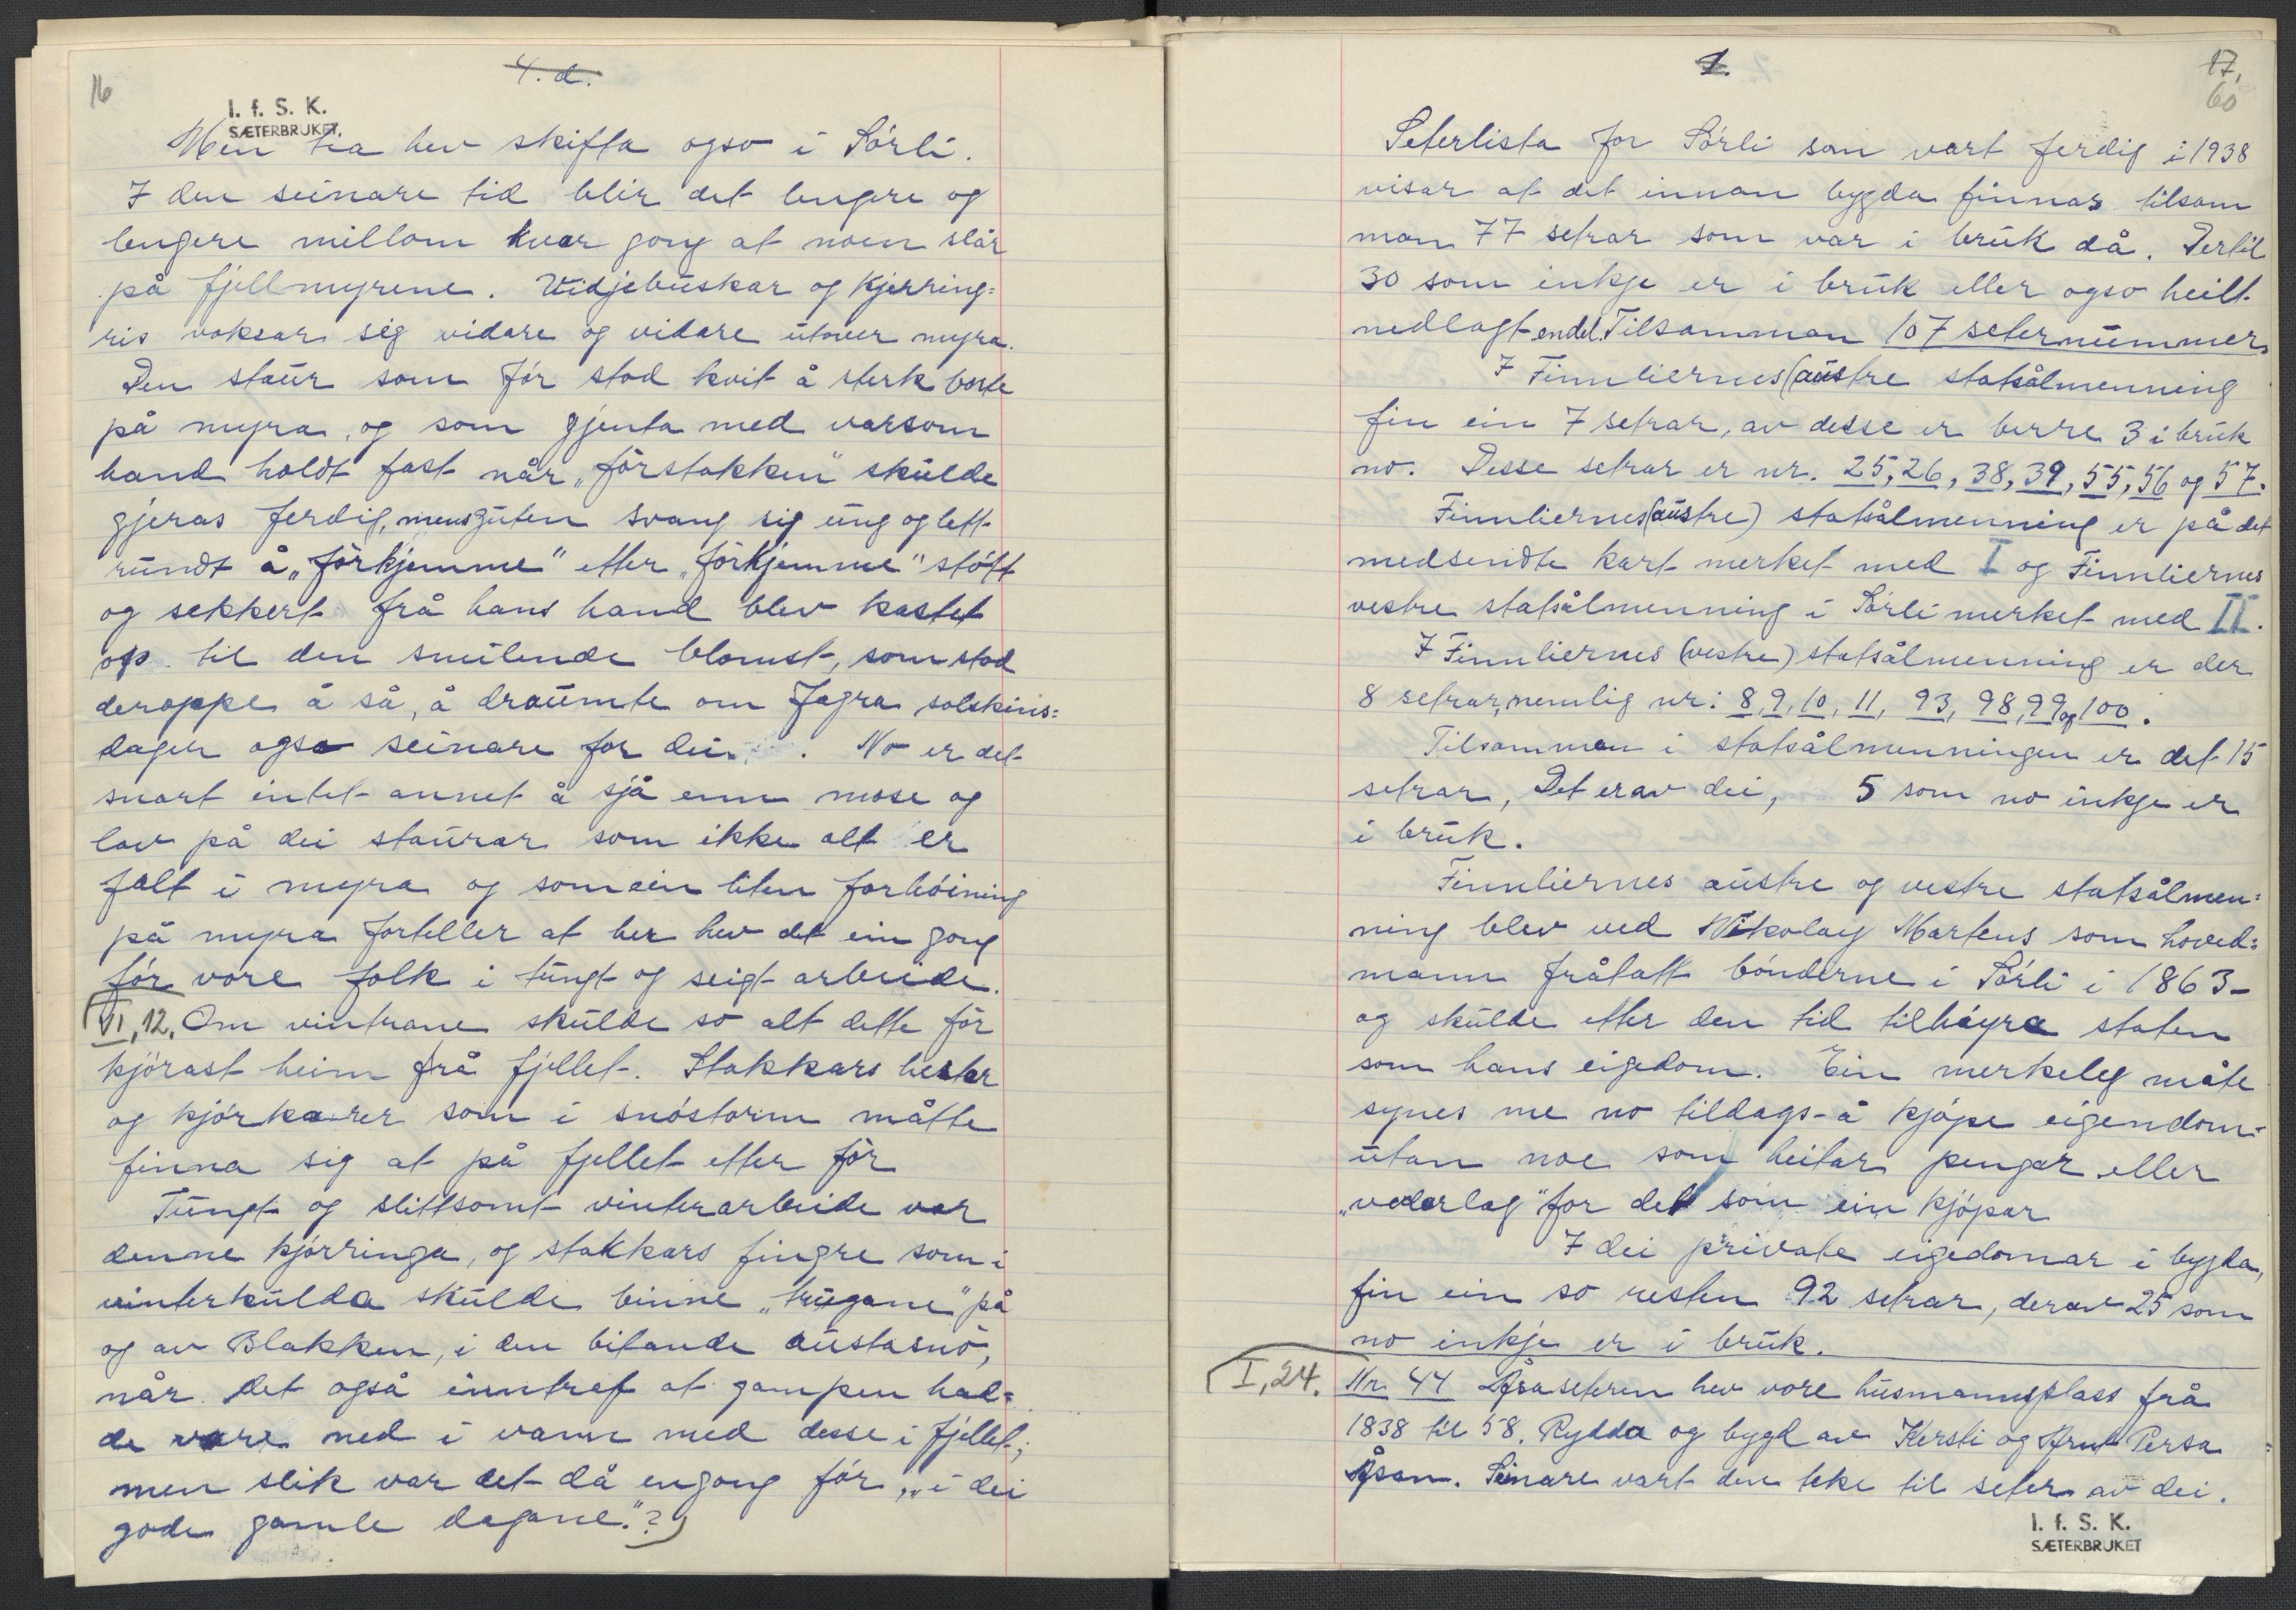 16
4. d.
I. f. S. K.
SÆTERBRUKET.
Men tia hev skifta ogso i Sörli.
I den seinare tid blir det lengere og
lengere millom kvar gong at noen slår
på fjellmyrene. Vidjebuskar og kjerring=
ris voksar sig vidare og vidare utover myra.
Den staur som för stod kvit å sterk borte
på myra, og som gjenta med varsom
hand holdt fast når „förstakken" skulde
gjeras ferdig, mens guten svang sig ung og lett
rundt å „förkjemme" etter „förkjemme" stött
og sekkert frå hans hand blev kastet
op til den smilende blomst, som stod
deroppe å så, å draumte om fagra solskins=
dager ogso seinare for dei. No er det
snart intet annet å sjå enn mose og
lav på dei staurar som ikke alt er
falt i myra og som ein liten forhöining
på myra forteller at her hev det ein gong
för vore folk i tungt og seigt arbeide.
VI, 12. Om vintrane skulde so alt dette för
kjörast heim frå fjellet. Stakkars hester
og kjörkarer som i snöstorm måtte
finna sig at på fjellet etter för
Tungt og slittsomt vinterarbeide var
denne kjörringa, og stakkars fingre som i
vinterkulda skulde binne „trugane" på
og av Blakken, i den bitande austasnö,
når det også inntraf at gampen had=
de vore ned i vann med desse i fjellet;
men slik var det då engong för, „i dei
gode gamle dagane."?
1.
17.
60
Seterlista for Sörli som vart ferdig i 1938
visar at det innan bygda finnas tilsam
man 77 setrar som var i bruk då. Dertil
30 som inkje er i bruk eller ogso heilt
nedlagt endel. Tilsamman 107 seternummer.
I Finnliernes (austre statsålmenning
fin ein 7 setrar, av desse er berre 3 i bruk
no. Desse setrar er nr. 25, 26, 38, 39, 55, 56 og 57.
Finnliernes (austre) statsålmenning er på det
medsendte kart merket med I og Finnliernes
vestre statsålmenning i Sörli merket med II.
I Finnliernes (vestre) statsålmenning er der
8 setrar, nemlig nr: 8, 9, 10, 11, 93, 98, 99 og 100.
Tilsammen i statsålmenningen er det 15
setrar, Det er av dei, 5 som no inkje er
i bruk.
Finnliernes austre og vestre statsålmen=
ning blev ved Nikolay Martens som hoved=
mann fråtatt bönderne i Sörli i 1863-
og skulde etter den tid tilhöyra staten
som hans eigedom. Ein merkeleg måte
synes me no tildags - å kjöpe eigendom-
utan noe som heitar pengar eller
„vederlag" for det som ein kjöpar
I dei private eigedomar i bygda,
fin ein so resten 92 setrar, derav 25 som
no inkje er i bruk.
I, 24. Nr. 44 Åsaseteren hev vore husmannsplass frå
1838 til 58. Rydda og bygd av Kersti og Arnt Persa
Åsan. Seinare vart den teke til seter av dei.
I. f. S. K.
SÆTERBRUKET